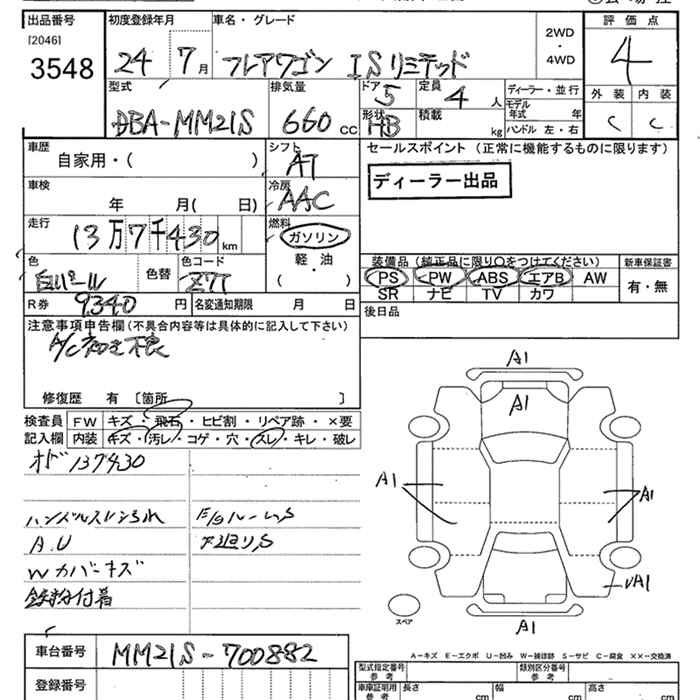 出品番号 初度登録年月 車名・グレード 2WD・4WD 評価点
[2046]
3548 24 7月 フレアワゴン ISリミテッド 4
型式 排気量 ドア 5 定員 4人 ディーラー・並行 外装 内装
DBA-MM21S 660cc 形状 HB 積載 kg モデル年式 年 C C
ハンドル 左・右
車歴 シフト セールスポイント(正常に機能するものに限ります)
自家用・( ) AT
ディーラー出品
車検 冷房
年 月( 日) AAC
走行 燃料
13万7千430km ガソリン
軽・油
( )
色 色替 色コード 装備品(純正品に限り○をつけてください) 新車保証書
白パール Z7T PS PW ABS エアB AW 有・無
SR ナビ TV カワ
R券 9,340円 名変通知期限 月 日 後日品
注意事項申告欄(不具合内容等は具体的に記入して下さい)
A/C 不良
修復歴 有〔箇所 〕
検査員 FW キズ・飛石・ヒビ割・リペア跡・×要
記入欄 内装 キズ・汚レ・コゲ・穴・スレ・キレ・破レ
オド137430
ハンドルスレ E/GルームS
A.U 下廻りS
Wカバーキズ
鉄粉付着
A1
A1
A1
A1
A1
スペア
A1
車台番号 MM21S-700882
登録番号
A-キズ E-エクボ U-凹み W-補修跡 S-サビ C-腐食 XX-交換済
型式指定番号 類別区分番号
車庫証明用 長さ cm 幅 cm 高さ cm